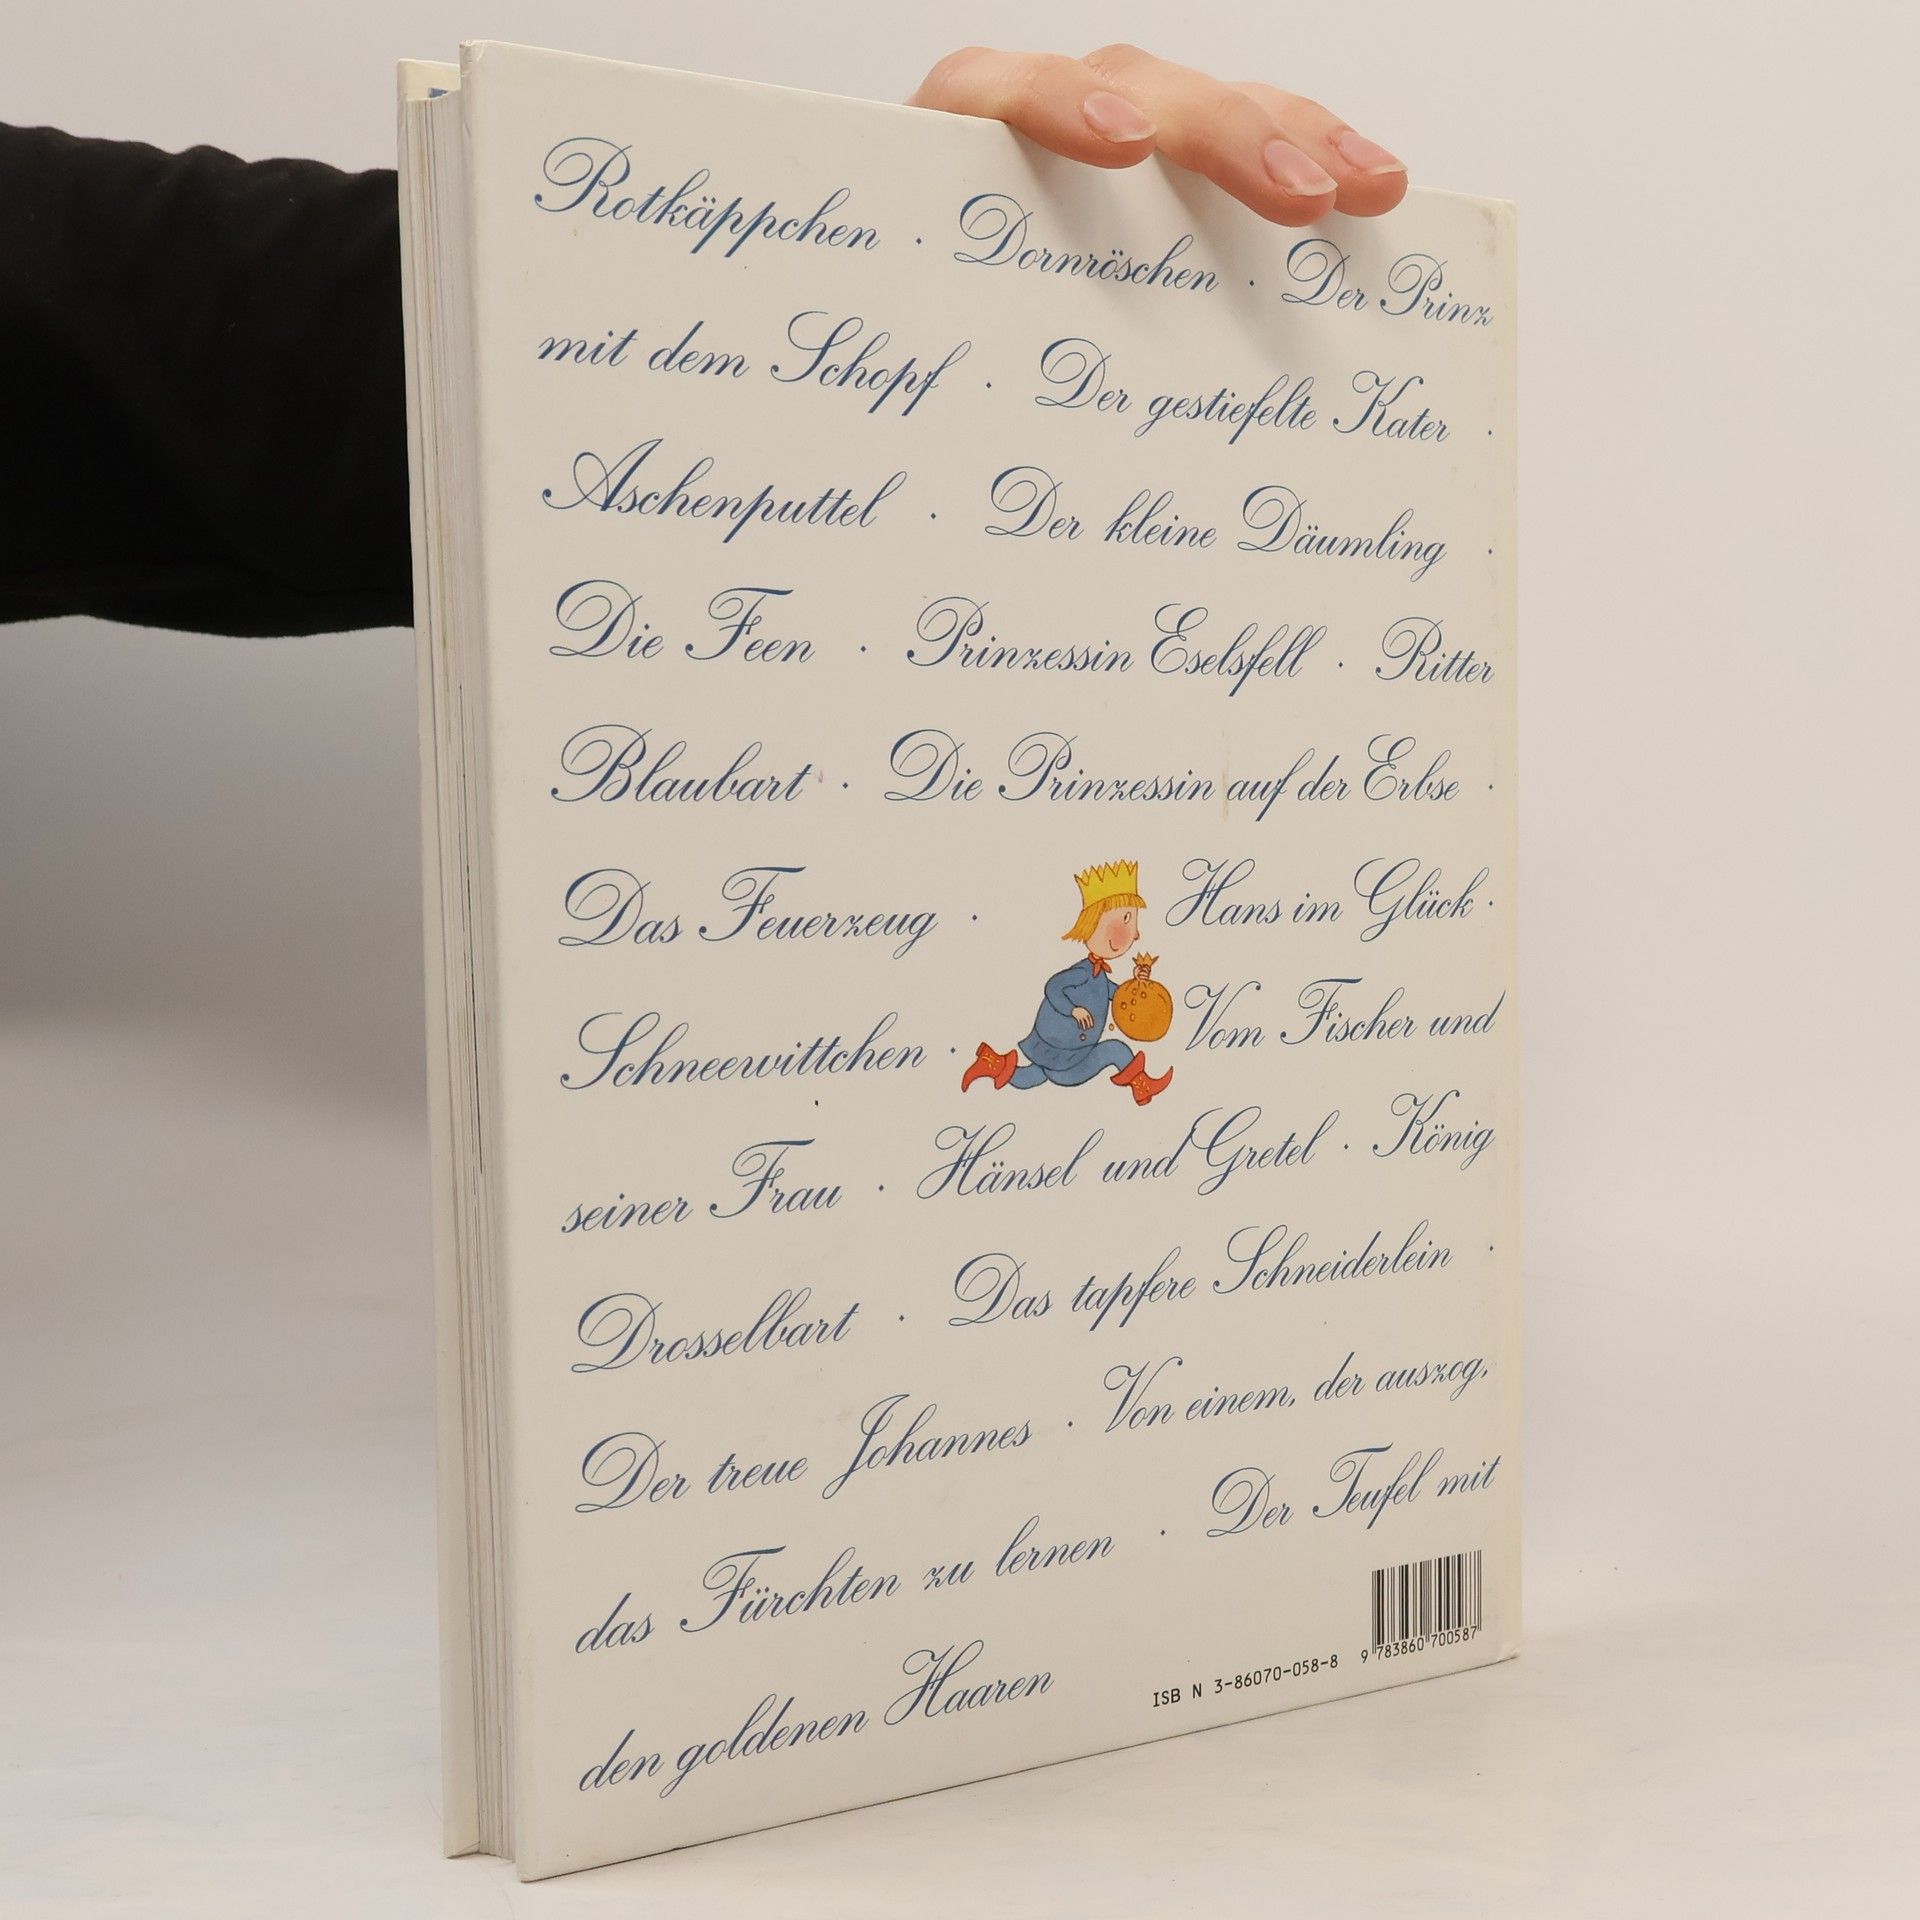 Rotkäppchen · Dornröschen · Der Prinz
mit dem Schopf · Der gestiefelte Kater ·
Aschenputtel · Der kleine Däumling ·
Die Feen · Prinzessin Eselsfell · Ritter
Blaubart · Die Prinzessin auf der Erbse ·
Das Feuerzeug · Hans im Glück ·
Schneewittchen · Vom Fischer und
seiner Frau · Hänsel und Gretel · König
Drosselbart · Das tapfere Schneiderlein ·
Der treue Johannes · Von einem, der auszog,
das Fürchten zu lernen · Der Teufel mit
den goldenen Haaren
ISB N 3-86070-058-8
9 783860 700587